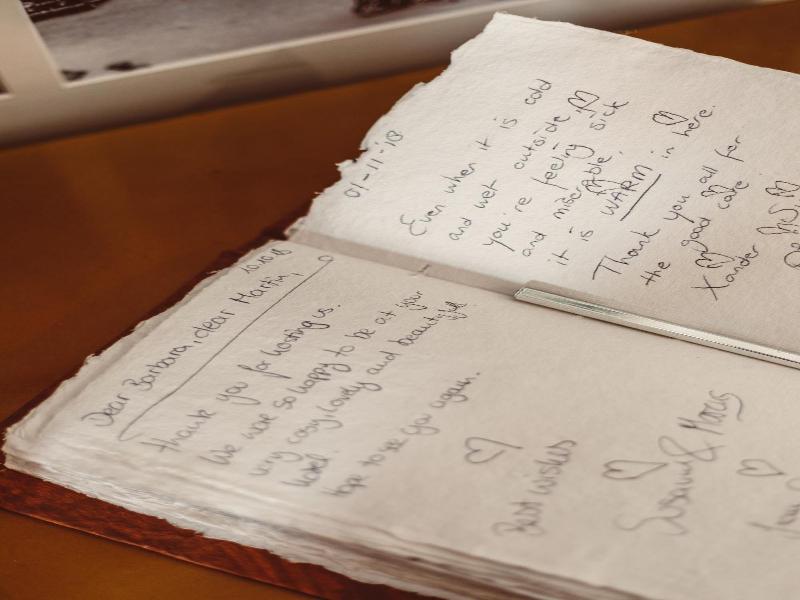 10.10.18
Dear Barbara, dear Martin,
Thank you for hosting us.
We were so happy to be at your
very cosy, lovely and beautiful
hotel.
Hope to see you again.
Best wishes
Susann & Marcus
01-11-18
Even when it is cold
and wet outside,
you're feeling sick
and miserable,
it is WARM in here.
Thank you all for
the good care
Xander